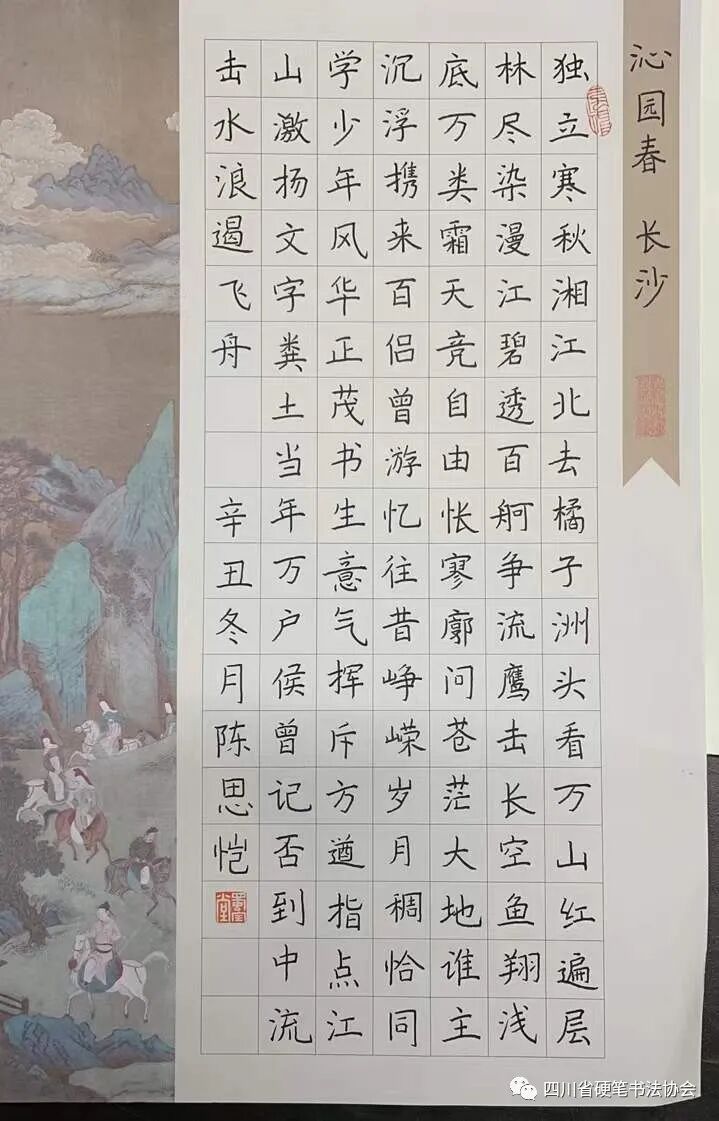 沁园春 长沙
独立寒秋湘江北去橘子洲头看万山红遍层
林尽染漫江碧透百舸争流鹰击长空鱼翔浅
底万类霜天竞自由怅寥廓问苍茫大地谁主
沉浮携来百侣曾游忆往昔峥嵘岁月稠恰同
学少年风华正茂书生意气挥斥方遒指点江
山激扬文字粪土当年万户侯曾记否到中流
击水浪遏飞舟 辛丑冬月陈思恺
四川省硬笔书法协会